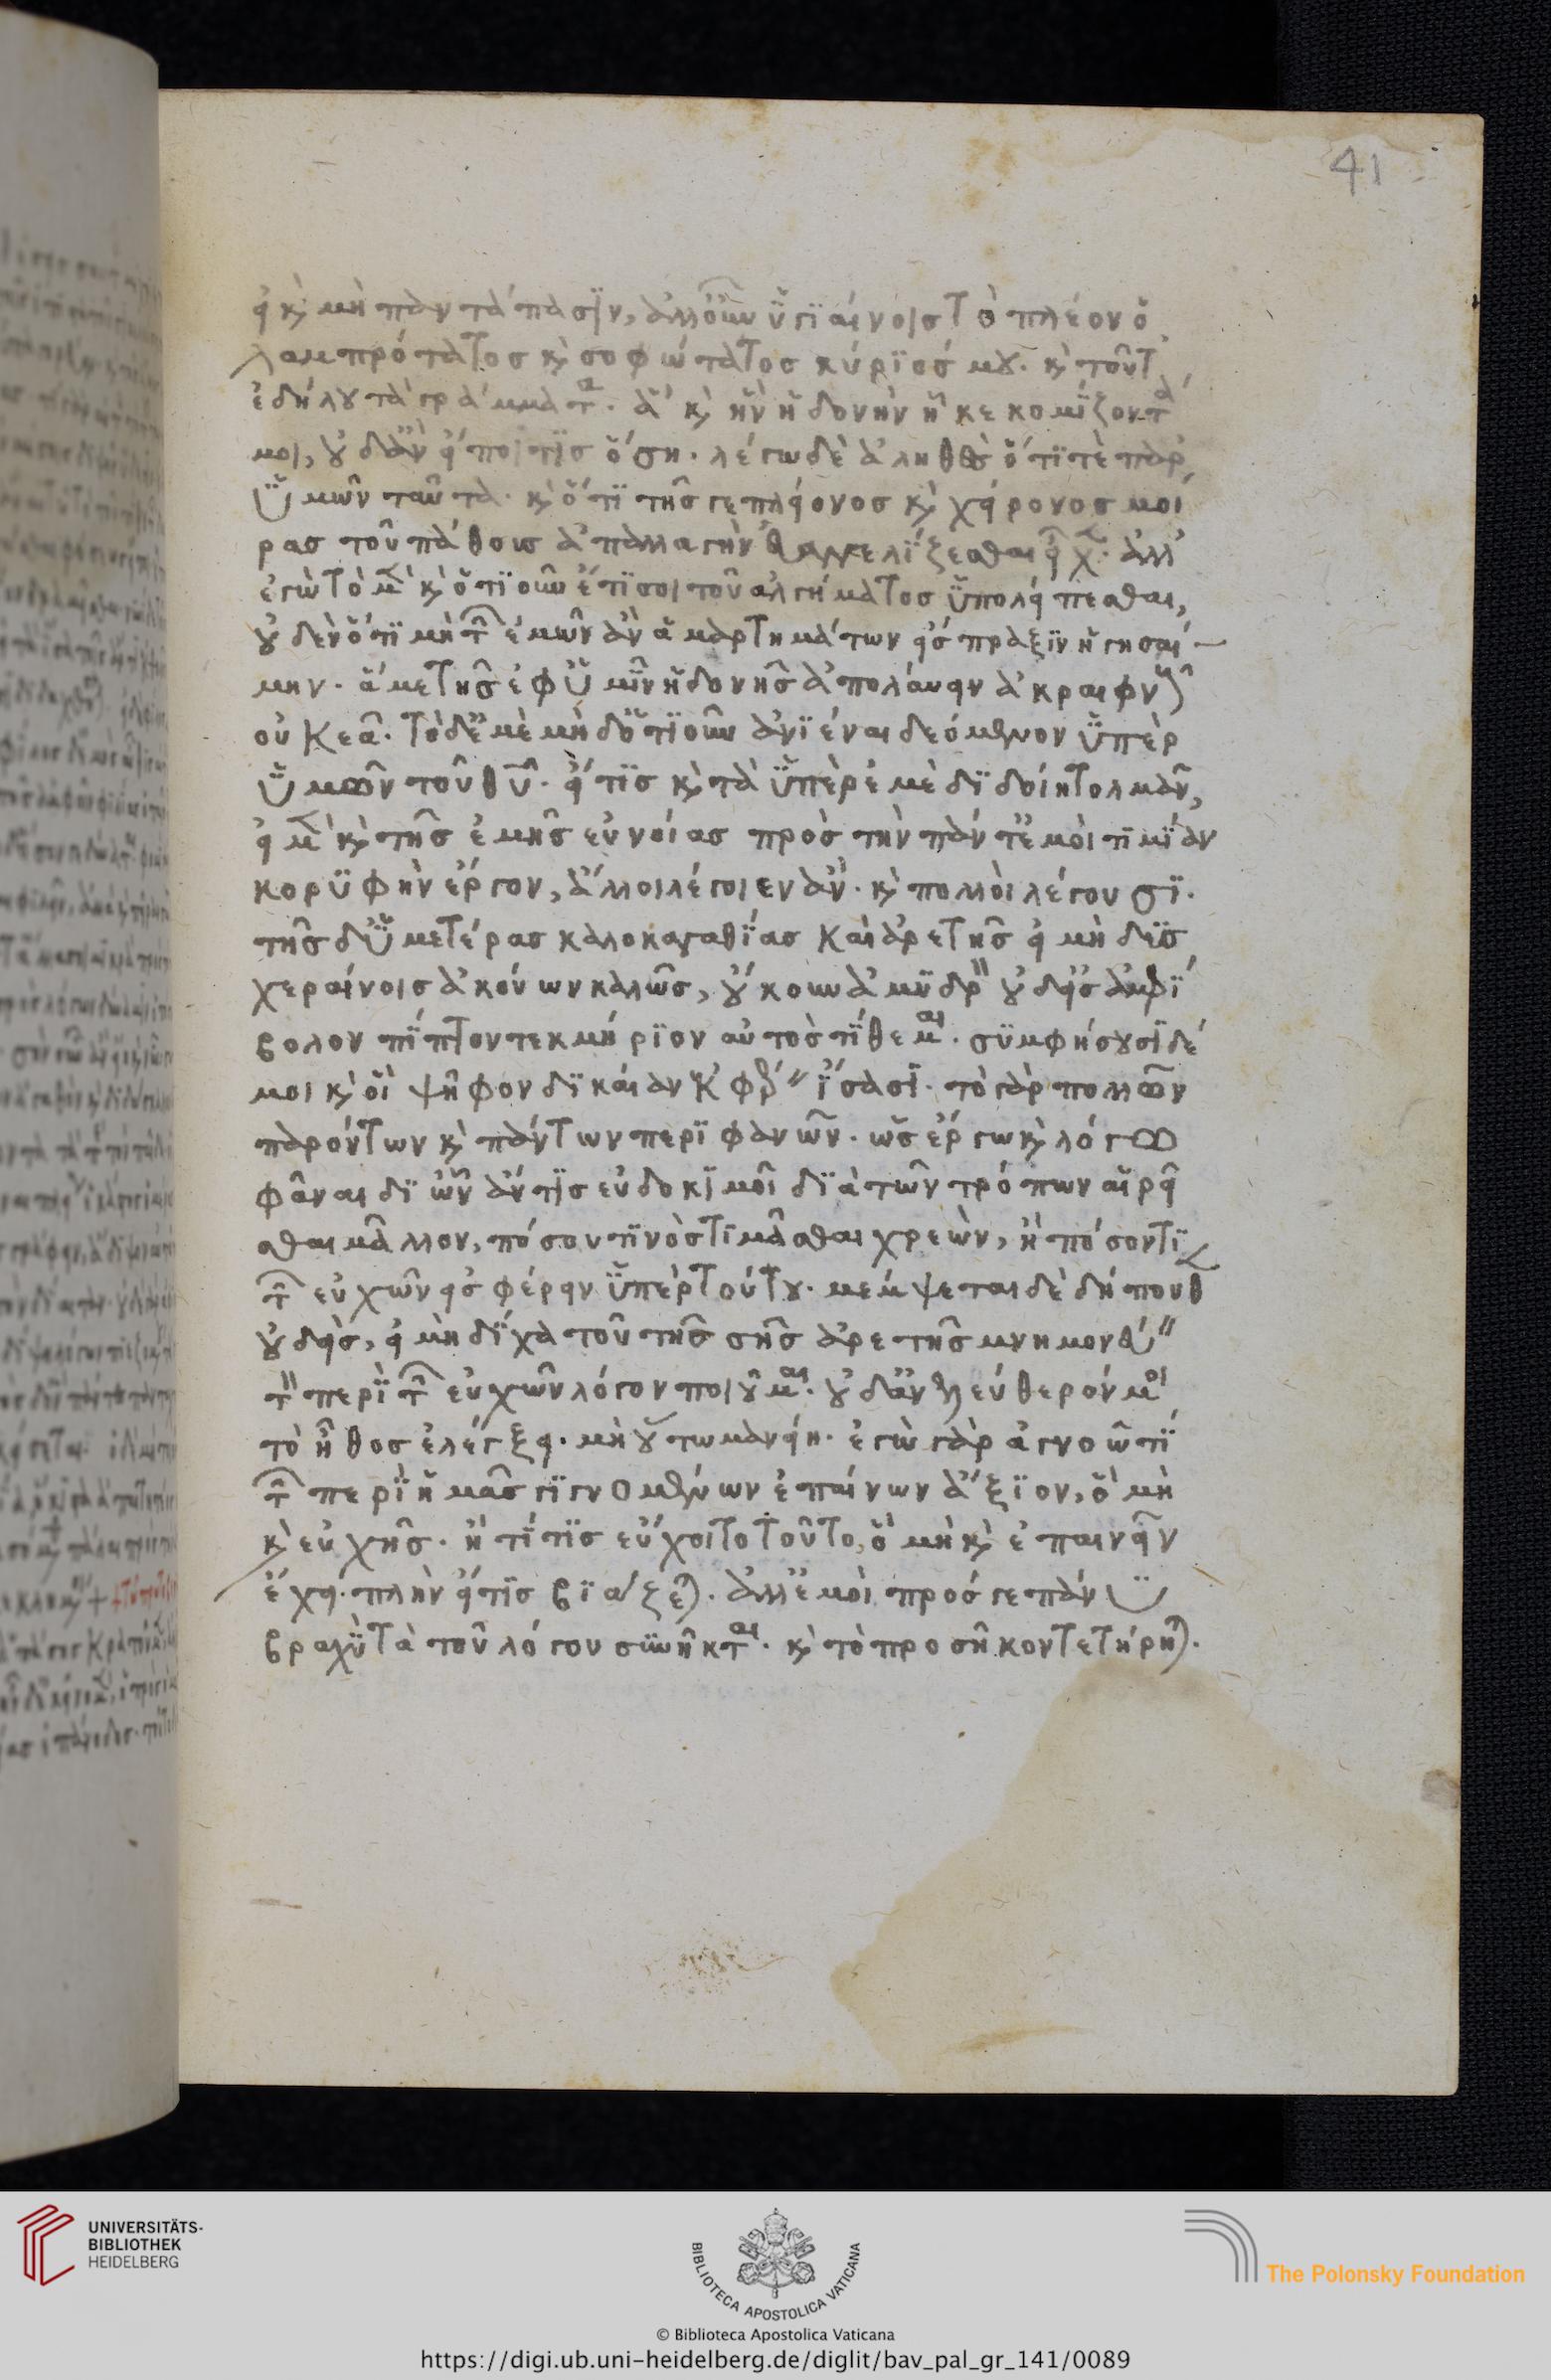 41
εἰ καὶ μὴ παντάπασιν, ἀλλ' οὖν ὑγιαίνοις τὸ πλέον ὁ
λαμπρότατος καὶ σοφώτατος κύριός μου. καὶ τοῦτ'
ἐδήλου τὰ γράμματα. ἃ καὶ ἣν ἡδονὴν ἧκε κομίζοντά
μοι, οὐδ' ἂν εἴποι τις ὅση. λέγω δὲ ἀληθῶς ὅτι τὲ παρ'
ὑμῶν ταῦτα. καὶ ὅτι τῆς γε πλείονος καὶ χείρονος μοί
ρας τοῦ πάθους ἀπαλλαγὴν εὐαγγελίζεσθαι εἶχεν. ἀλλ'
ἐγὼ τὸ μὲν καὶ ὁτιοῦν ἔτι σοι τοῦ ἀλγήματος ὑπολείπεσθαι,
οὐδὲν ὅτι μὴ τῶν ἐμῶν ἂν ἁμαρτημάτων εἰσπραξιν ἡγησαί
μην. ἅ με τῆς ἐφ' ὑμῖν ἡδονῆς ἀπολαύειν ἀκραιφνοῦς
οὐκ ἐᾷ. τὸ δ' ἐμὲ μηδ' ὁτιοῦν ἀνιέναι δεόμενον ὑπὲρ
ὑμῶν τοῦ θεοῦ. εἴ τις καὶ τὰ ὑπὲρ ἐμὲ διδοίη τολμᾶν,
εἶ μὲν καὶ τῆς ἐμῆς εὐνοίας πρὸς τὴν πάντ' ἐμοὶ τιμίαν
κορυφὴν ἔργον, ἄλλοι λέγοιεν ἄν. καὶ πολλοὶ λέγουσι.
τῆς δ' ὑμετέρας καλοκαγαθίας καὶ ἀρετῆς εἰ μὴ δυσ
χεραίνοις ἀκούων καλῶς, οὔκουν ἀμυδρὸν οὐδ' εἰς ἀμφί
βολον πίπτον τεκμήριον αὐτὸς τίθεμαι. συμφήσουσι δέ
μοι καὶ οἱ ψῆφον δικαίαν ἐκφέρειν ἴσασι. τὸ γὰρ πολλῶν
παρόντων καὶ πάντων περιφανῶν. ὡς ἔργω καὶ λόγω
φᾶναι δι' ὧν ἄν τις εὐδοκιμοῖ διὰ τῶν τρόπων αἱρεῖ
σθαι μᾶλλον, πόσου τινὸς τιμᾶσθαι χρεὼν, ἢ πόσον τι
τῶν εὐχῶν εἰσφέρειν ὑπὲρ τούτου. μέμψεται δὲ δήπουθεν
οὐδεὶς, εἰ μὴ δίχα τοῦ τῆς σῆς ἀρετῆς μνημονεύειν
τὸν περὶ τῶν εὐχῶν λόγον ποιοῦμαι. οὐδ' ἀνελεύθερόν μοι
τὸ ἦθος ἐλέγξει. μὴ οὕτω μανείη. ἐγὼ γὰρ ἀγνοῶ τί
τῶν περὶ ἡμᾶς γιγνομένων ἐπαίνων ἄξιον, ὃ μὴ
καὶ εὐχῆς. ἢ τί τις εὔχοιτο τοῦτο, ὃ μὴ καὶ ἐπαινεῖν
ἔχει. πλὴν εἴ τις βιάζεται. ἀλλ' ἐμοὶ πρός γε πάνυ
βραχὺ τὰ τοῦ λόγου συνῆκται. καὶ τὸ προσῆκον τετήρηται.
UNIVERSITÄTS-
BIBLIOTHEK
HEIDELBERG
BIBLIOTECA APOSTOLICA VATICANA
The Polonsky Foundation
© Biblioteca Apostolica Vaticana
https://digi.ub.uni-heidelberg.de/diglit/bav_pal_gr_141/0089